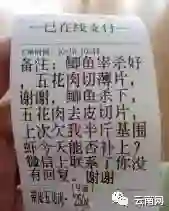 已在线支付
备注：鲫鱼宰杀好
，五花肉切薄片，
谢谢，鲫鱼杀下，
五花肉去皮切片，
上次欠我半斤基围
虾今天能否补上？
微信上联系了你没
有回复。谢谢
云南网